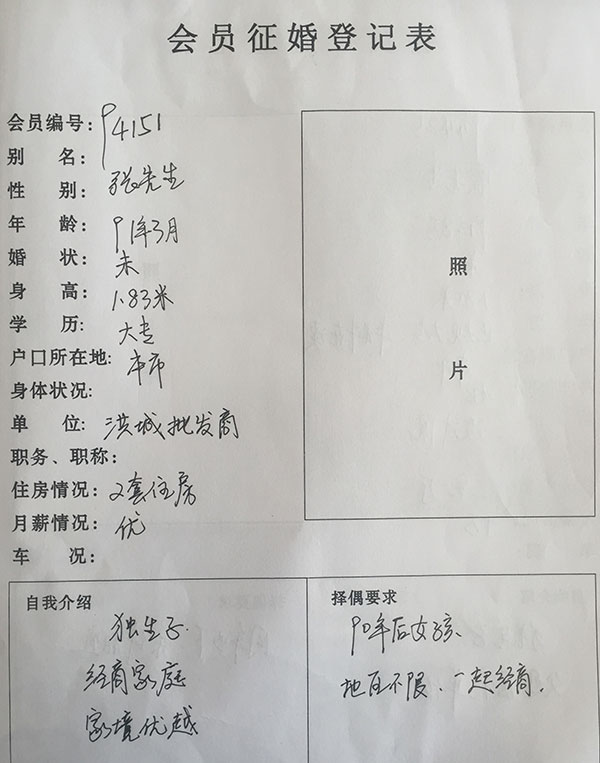 会员征婚登记表
会员编号: 94151
别 名:
性 别: 张先生
年 龄: 91年3月
婚 状: 未
身 高: 1.83米
学 历: 大专
户口所在地: 本市
身体状况:
单 位: 洪城批发商
职务、职称:
住房情况: 2套住房
月薪情况: 优
车 况:
照
片
自我介绍
独生子
经商家庭
家境优越
择偶要求
90年后女孩、
地区不限、一起经商.